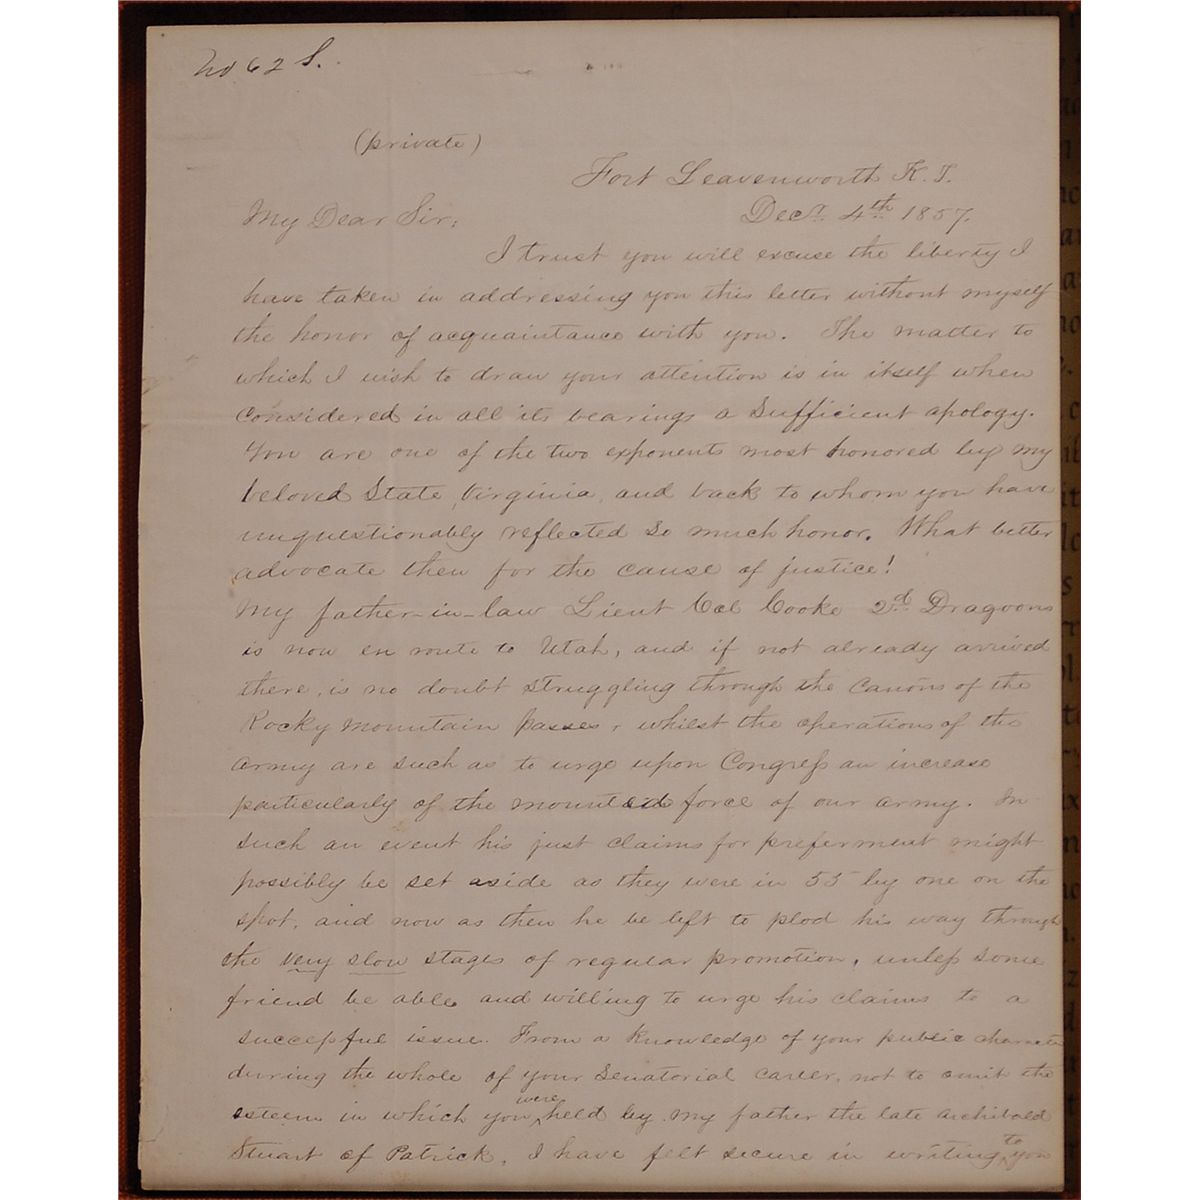 No 62 S.
(private)
Fort Leavenworth K. T.
My Dear Sir:
Decr. 4th 1857.
I trust you will excuse the liberty I
have taken in addressing you this letter without myself
the honor of acquaintance with you. The matter to
which I wish to draw your attention is in itself when
considered in all its bearings a sufficient apology.
You are one of the two exponents most honored by my
beloved State, Virginia, and back to whom you have
unquestionably reflected so much honor. What better
advocate then for the cause of justice!
My father-in-law Lieut Col Cooke 2d Dragoons
is now en route to Utah, and if not already arrived
there, is no doubt struggling through the cañons of the
Rocky Mountain passes, whilst the operations of the
army are such as to urge upon Congress an increase
particularly of the mounted force of our army. In
such an event his just claims for preferment might
possibly be set aside as they were in 55 by one on the
spot, and now as then he be left to plod his way through
the very slow stages of regular promotion, unless some
friend be able and willing to urge his claims to a
successful issue. From a knowledge of your public character
during the whole of your Senatorial career, not to omit the
esteem in which you were held by my father the late Archibald
Stuart of Patrick, I have felt secure in writing to you